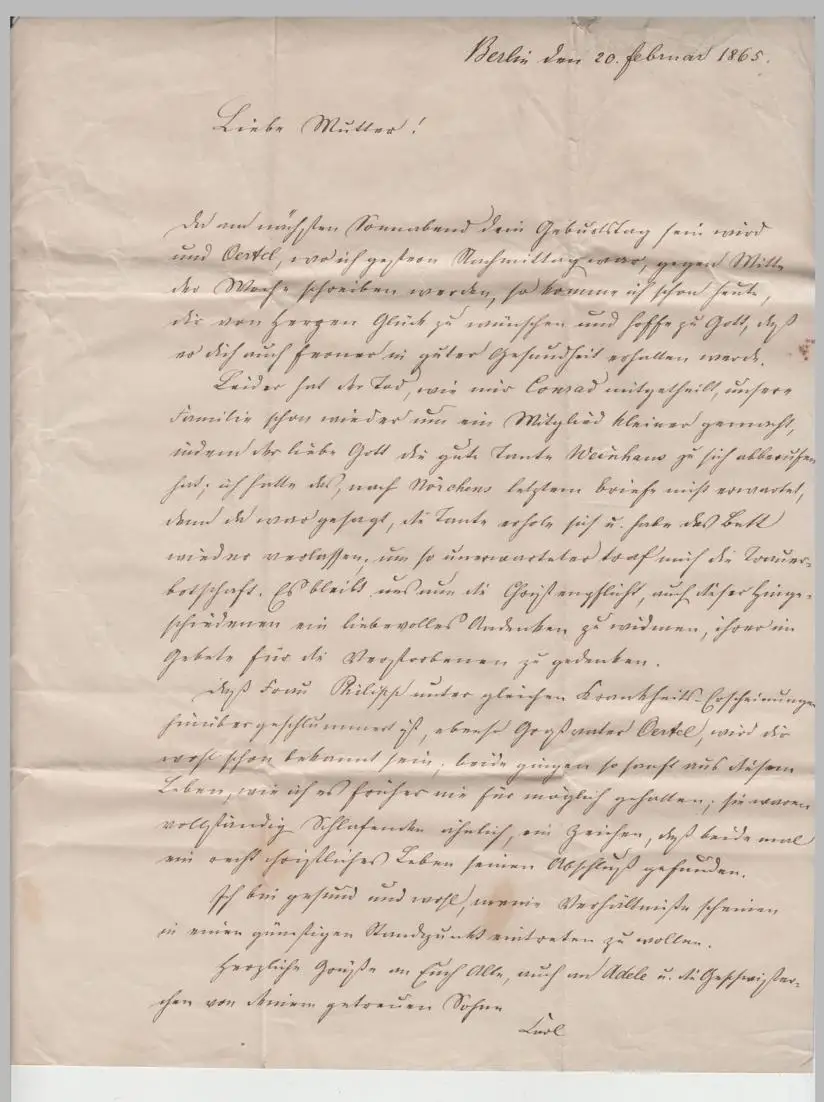 Berlin den 20. Februar 1865.
Liebe Mutter!
Da am nächsten Sonnabend dein Geburtstag sein wird
und Oertel, wo ich gestern Nachmittag war, gegen Mitte
der Woche schreiben werden, so komme ich schon heute,
dir von Herzen Glück zu wünschen und hoffe zu Gott, daß
er dich auch ferner in guter Gesundheit erhalten werde.
Leider hat der Tod, wie mir Conrad mitgetheilt, unsere
Familie schon wieder um ein Mitglied kleiner gemacht,
indem der liebe Gott die gute Tante Weinhaus zu sich abberufen
hat; ich hatte das, nach Nörchens letztem Briefe nicht erwartet,
denn da war gesagt, die Tante erhole sich u. habe das Bett
wieder verlassen; um so unerwarteter traf mich die Trauer-
botschaft. Es bleibt uns nun die Christenpflicht, auch dieser Hinge-
schiedenen ein liebevolles Andenken zu widmen, ihrer im
Gebete für die Verstorbenen zu gedenken.
Daß Frau Philipp unter gleichen Krankheits-Erscheinungen
hinübergeschlummert ist, ebenso Großvater Oertel, wird dir
wohl schon bekannt sein; beide gingen so sanft aus diesem
Leben, wie ich es früher nie für möglich gehalten; sie waren
vollständig Schlafenden ähnlich, ein Zeichen, daß beide mal
ein recht christliches Leben seinen Abschluß gefunden.
Ich bin gesund und wohl, meine Verhältniße scheinen
in einen günstigen Standpunkt eintreten zu wollen.
Herzliche Grüße an Euch Alle, auch an Adele u. die Geschwister-
chen von deinem getreuen Sohne
Carl